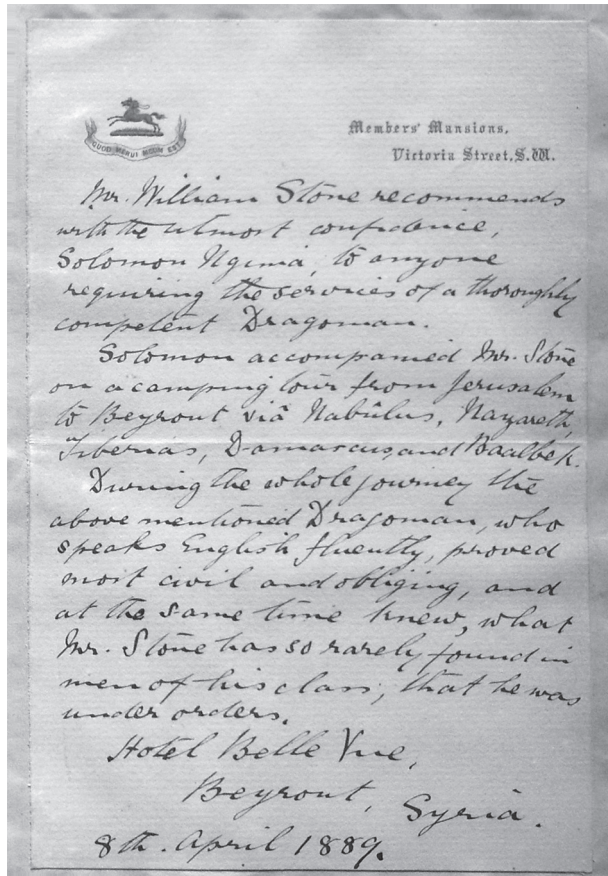 QUOD MERUI MEUM EST
Members' Mansions,
Victoria Street, S.W.
Mr. William Stone recommends
with the utmost confidence,
Solomon Ngima, to anyone
requiring the services of a thoroughly
competent Dragoman.
Solomon accompanied Mr. Stone
on a camping tour from Jerusalem
to Beyrout viâ Nabûlus, Nazareth,
Tiberias, Damascus, and Baalbek.
During the whole journey the
above mentioned Dragoman, who
speaks English fluently, proved
most civil and obliging, and
at the same time knew, what
Mr. Stone has so rarely found in
men of his class, that he was
under orders.
Hotel Belle Vue,
Beyrout, Syria.
8th. April 1889.